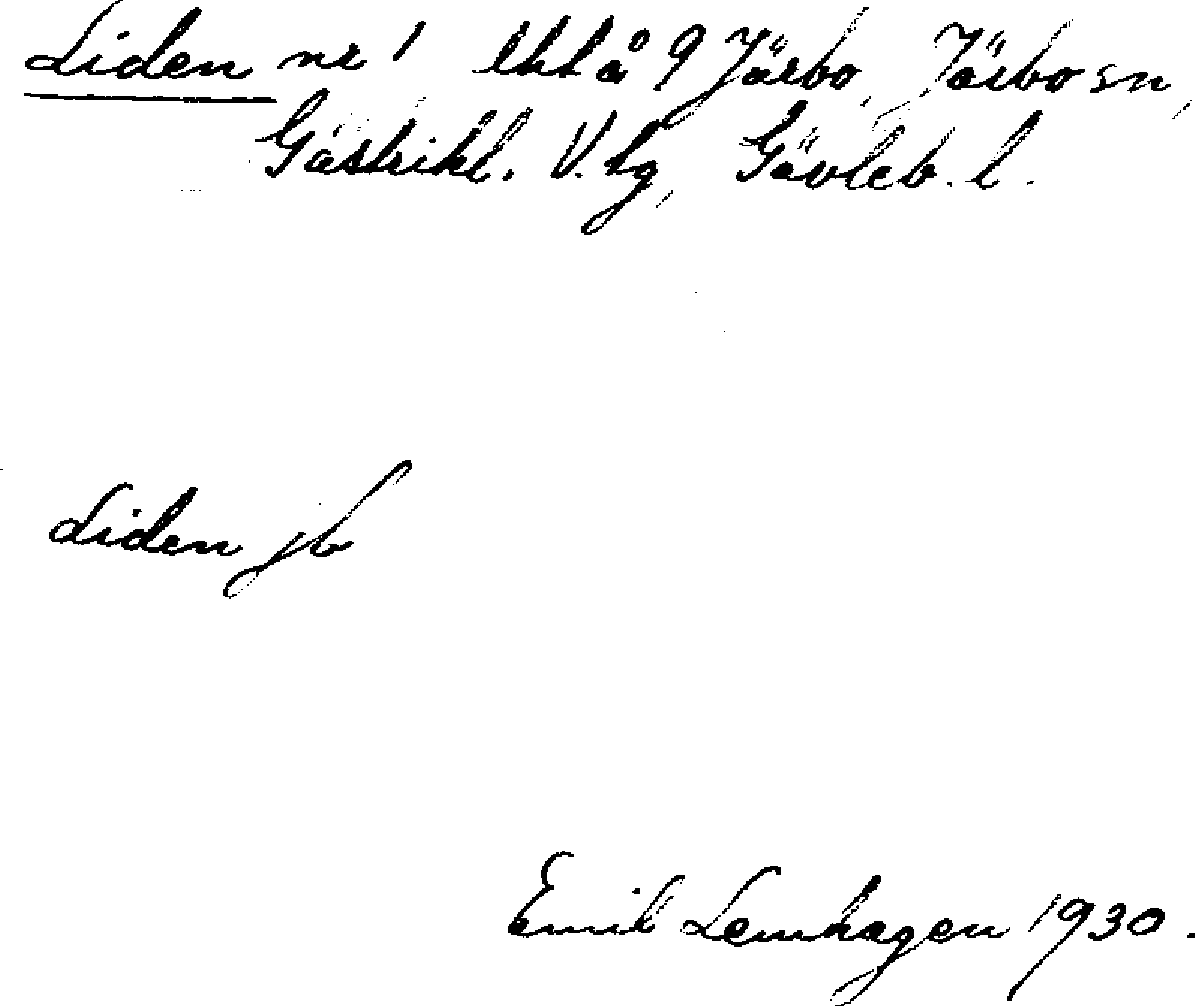 Liden nr 1 lht å 9 Järbo, Järbo sn,
Gästrikl. V. tg, Gävleb. l.
Liden jb
Emil Lemhagen 1930.